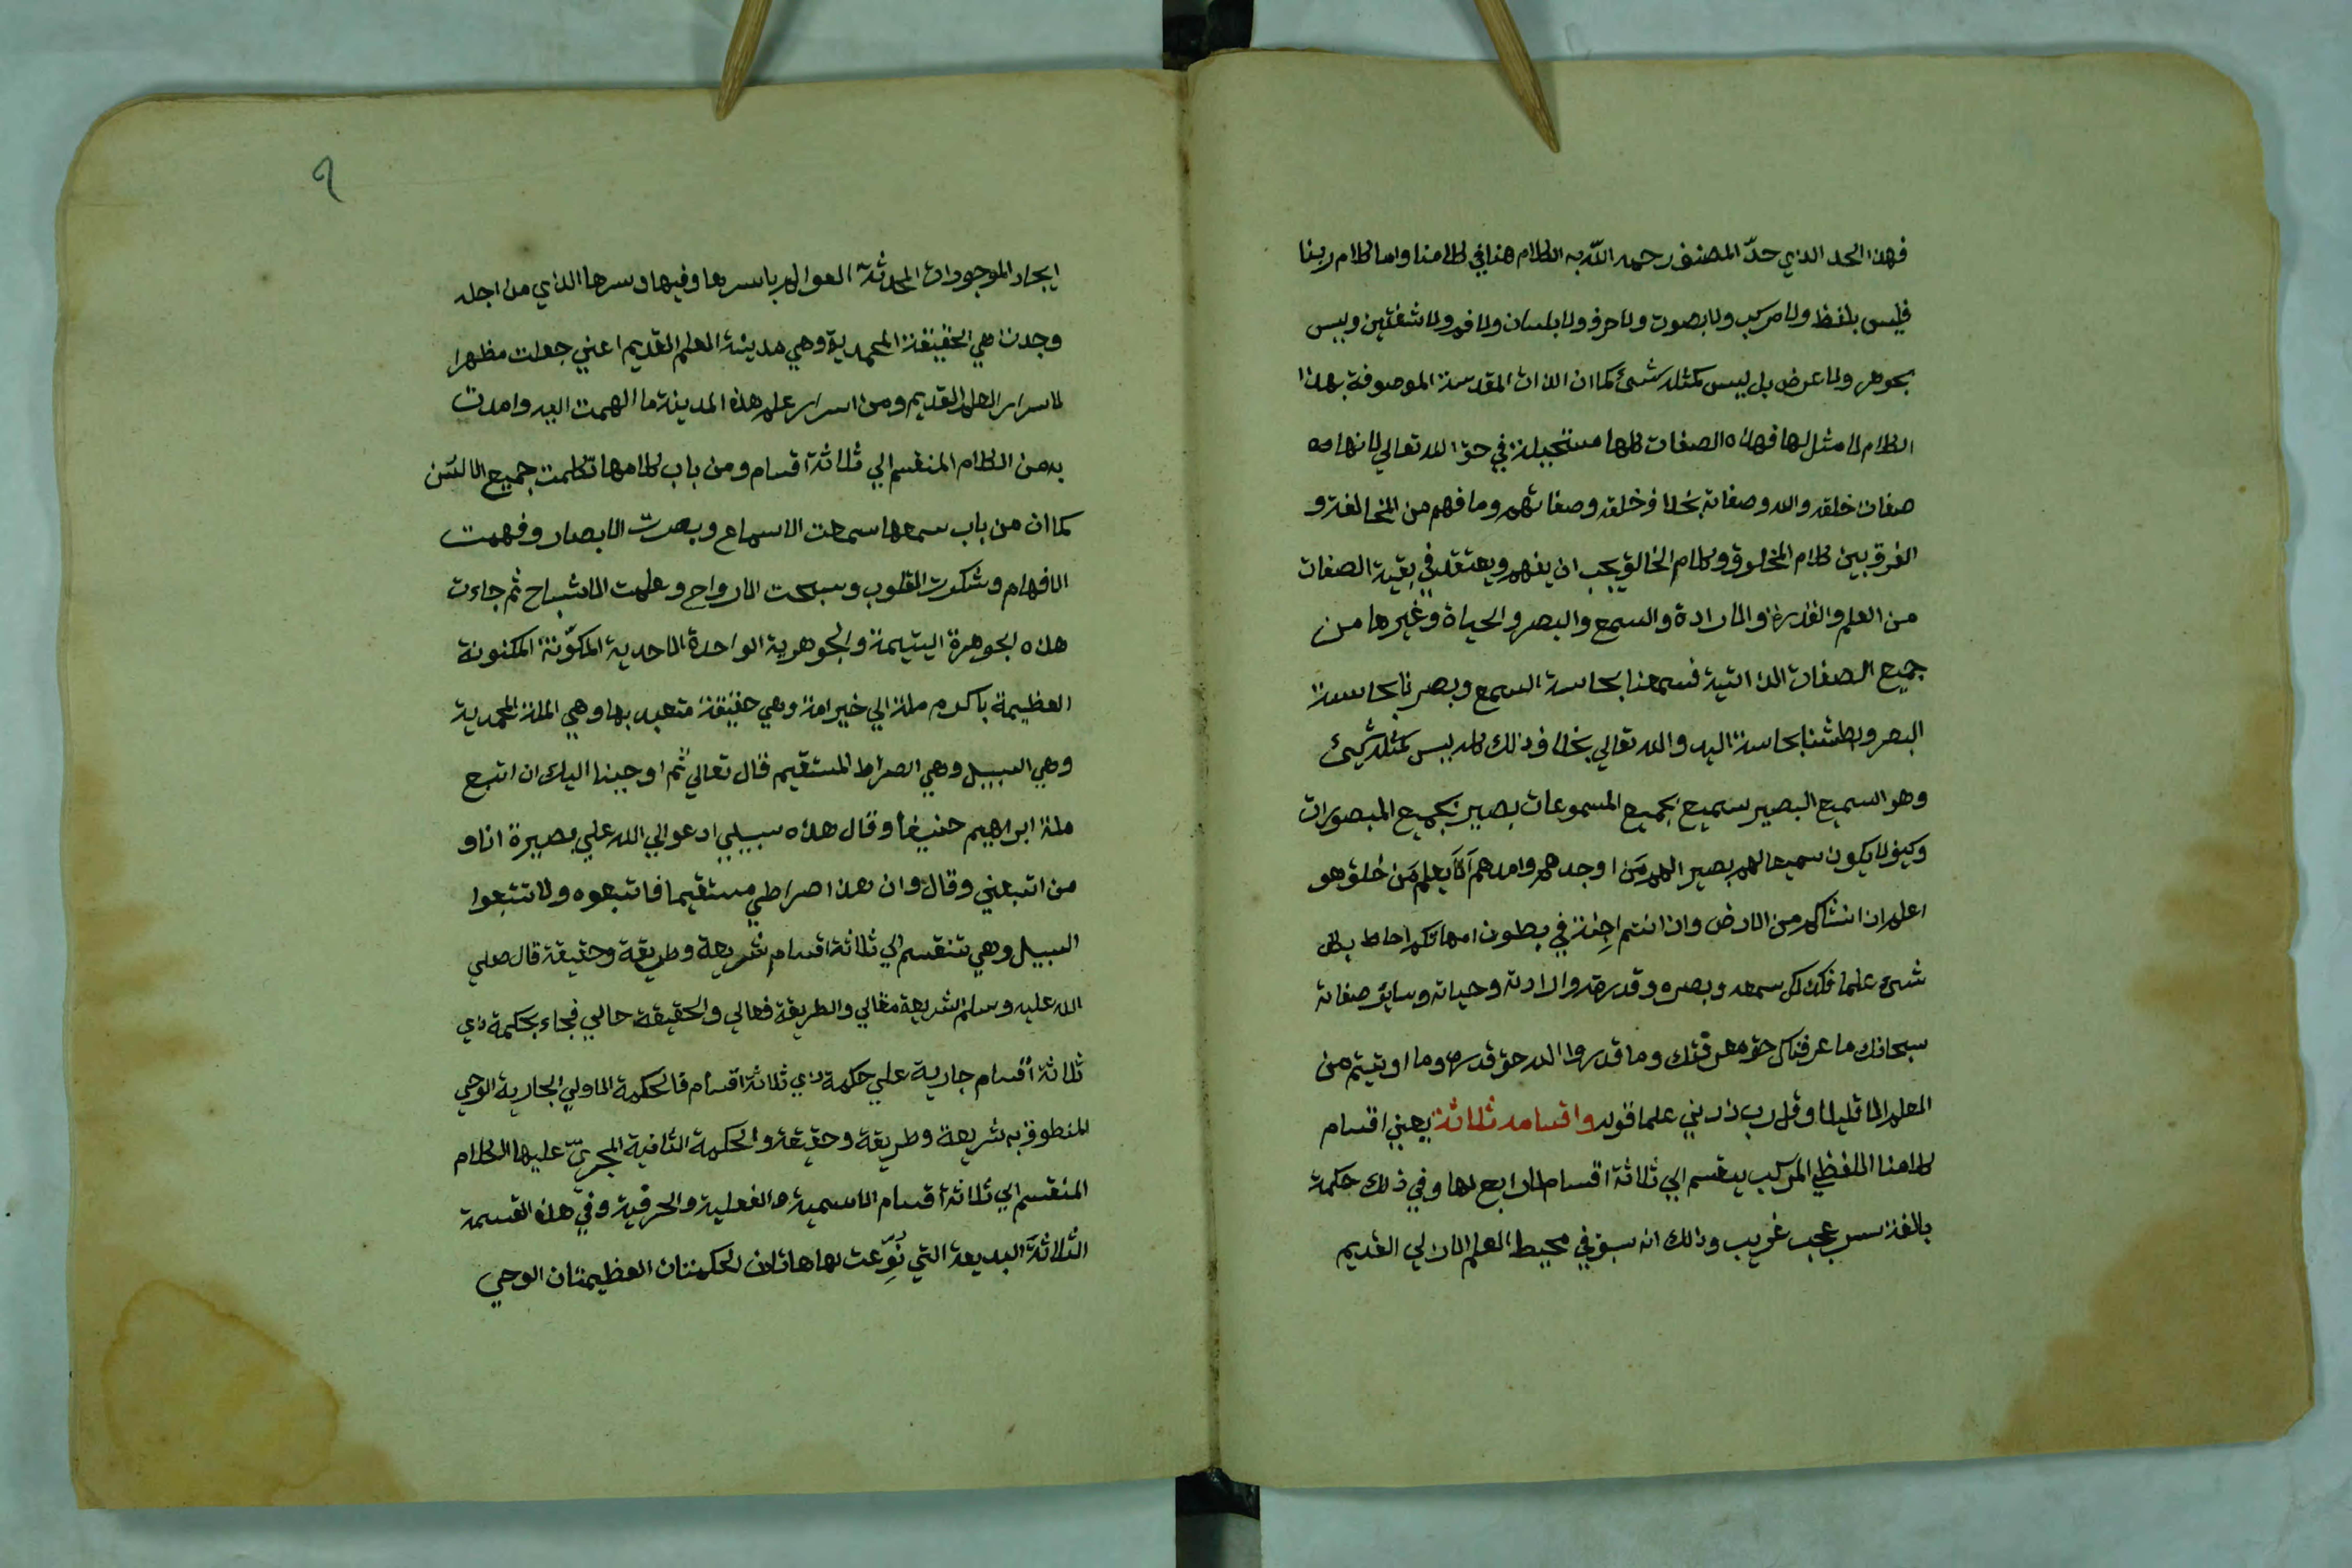 فهذا الحد الذي حدّ المصنف رحمه اللّه به الكلام هنا في كلامنا واما كلام ربنا
فليس بلفظ ولا مركب ولا بصوت ولا حرف ولا بلسان ولا فم ولا شفتين وليس
بجوهر ولا عرض بل ليس كمثله شيئ كما ان الذات المقدسة الموصوفة بهذا
الكلام لا مثل لها فهذه الصفات كلها مستحيلة في حق الله تعالي لانها من
صفات خلقه والله وصفاته بخلاف خلقه وصفاتهم وما فهم من المخالفة و
الفرق بين كلام المخلوق وكلام الخالق يجب ان يفهم ويعتقد في بقية الصفات
من العلم والقدرة والارادة والسمع والبصر والحياة وغيرها من
جميع الصفات الذاتية فسمعنا بحاسة السمع وبصرنا بحاسة
البصر وبطشنا بحاسة اليد والله تعالي بخلاف ذلك كله ليس كمثله شيئ
وهو السميع البصير سميع بجميع المسموعات بصير بجميع المبصورات
وكيف لا يكون سميعا لهم بصيرا لهم مَن اوجدهم وامدهم أَلَا يعلم مَن خلق هو
اعلم اذ انشاكم من الارض واذ انتم اجِنة في بطون امهاتكم احاط بكل
شيء علما فكذلك سمعه وبصره وقدرته وارادته وحياته وساير صفاته
سبحانك ما عرفناك حق معرفتك وما قدروا الله حق قدره وما اوتيتم من
العلم الا قليلا وقل رب زدني علما قوله واقسامه ثلاثة يعني اقسام
كلامنا اللفظي المركب ينقسم الي ثلاثة اقسام لا رابع لها وفي ذلك حكمة
بالغة سر عجب غريب وذلك انه سبق في محيط العلم الازلي القديم
٩
ايجاد الموجودات المحدثة العوالم باسرها وفيها وسرها الذي من اجله
وجدت هي الحقيقة المحمدية وهي مدينة العلم القديم اعني جعلت مظهرا
لاسرار العلم القديم ومن اسرار علم هذه المدينة ما الهمت اليه وامدت
به من الكلام المنقسم الي ثلاثة اقسام ومن باب كلامها تكلمت جميع الالسن
كما ان من باب سمعها سمعت الاسماع وبصرت الابصار وفهمت
الافهام وشكرت القلوب وسبحت الارواح وعلمت الاشباح ثم جاءت
هذه الجوهرة اليتيمة والجوهرية الواحدة الاحدية المكوّنة المكنونة
العظيمة باكرم ملة الي خير امة وهي حقيقة متعبد بها وهي الملة المحمدية
وهي السبيل وهي الصراط المستقيم قال تعالي ثم اوحينا اليك ان اتبع
ملة ابراهيم حنيفا وقال هذه سبيلي ادعو الي الله علي بصيرة انا و
من اتبعني وقال وان هذا صراطي مستقيما فاتبعوه ولا تتبعوا
السبل وهي تنقسم الي ثلاثة اقسام شريعة وطريقة وحقيقة قال صلي
الله عليه وسلم الشريعة مقالي والطريقة فعالي والحقيقة حالي فجاء بحكمة ذي
ثلاثة اقسام جارية علي حكمة ذي ثلاثة اقسام فالحكمة الاولي الجارية الوحي
المنطوق به شريعة وطريقة وحقيقة والحكمة الثانية المجريّ عليها الكلام
المنقسم الي ثلاثة اقسام الاسمية والفعلية والحرفية وفي هذه القسمة
الثلاثة البديعة التي نُوِّعت لها هاتان الحكمتان العظيمتان الوحي